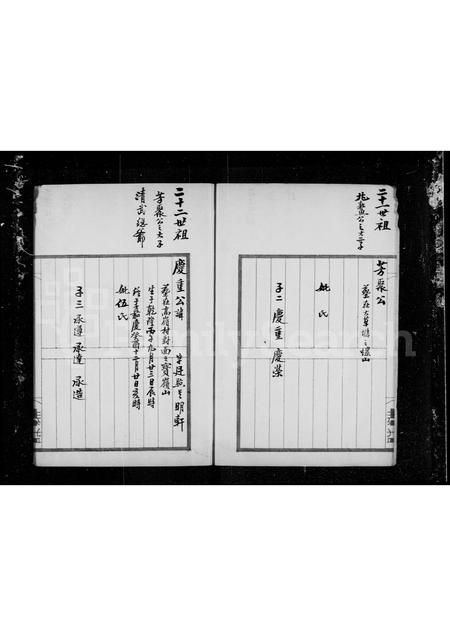 二十一世祖
兆盤公之大子
芳聚公
葬在大草塘之螺山
妣 氏
子二 慶重 慶榮
二十二世祖
芳聚公之大子
清武總爺
慶重公諱 字廷 號 明軒
葬在高嶺村對面之寶嶺山
生于乾隆丙子九月廿三日辰時
終于嘉慶癸酉十二月廿日亥時
妣伍氏
子三 承運 承達 承造
FamilySearch